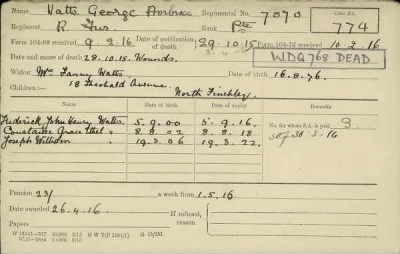 Name Watts George Ambrose Regimental No. 7070 Case No. 774
Regiment R. Fus. Rank Pte
Form 104-88 received 9.2.16 Date of notification of death 29.10.15 Form 104-76 received 10.2.16
Date and cause of death 28.10.15. Wounds. WDQ 768 DEAD
Widow Mrs Fanny Watts Date of birth 16.8.76.
Children:— 18 Theobald Avenue, North Finchley.
Name Date of birth Date of expiry Remarks
Frederick John Henry Watts. 5.9.00 5.9.16.
Constance Grace Ethel " 8.8.02 8.8.18
Joseph William " 19.3.06 19.3.22.
No. for whom S.A. is paid 3
30.3.16
Pension 23/ a week from 1.5.16
Date awarded 26.4.16 If refused, reason
Papers